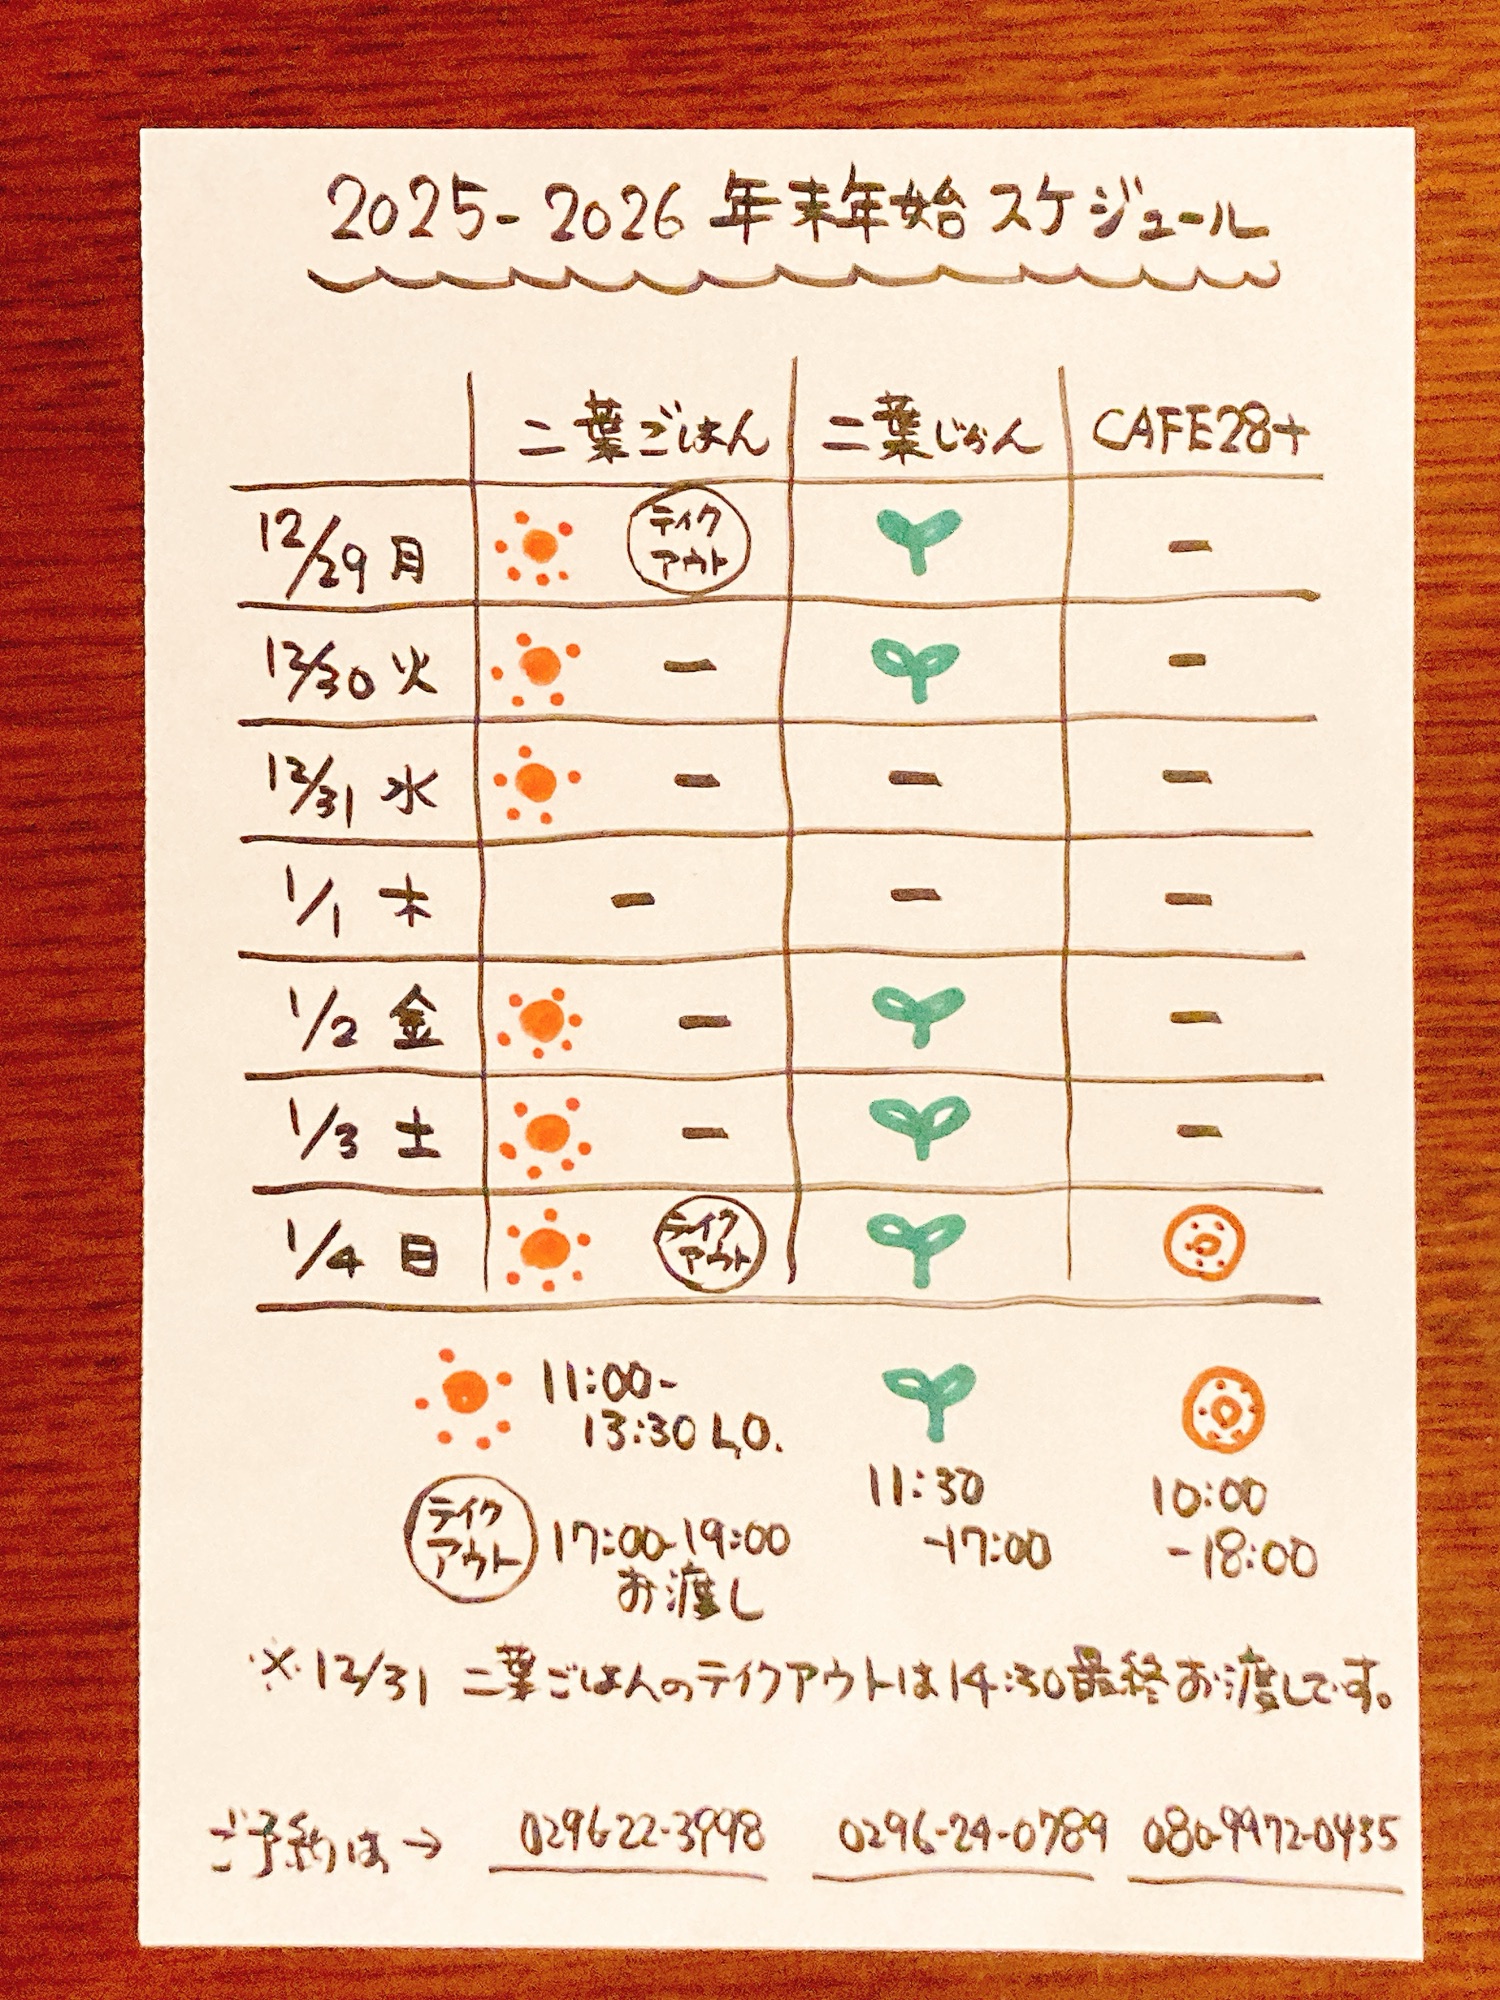 2025-2026 年末年始 スケジュール
二葉ごはん 二葉じかん CAFE28+
12/29 月 テイクアウト -
12/30 火 - -
12/31 水 - - -
1/1 木 - - -
1/2 金 - -
1/3 土 - -
1/4 日 テイクアウト
11:00-
13:30 L.O.
テイクアウト 17:00-19:00
お渡し
11:30
-17:00
10:00
-18:00
※12/31 二葉ごはんのテイクアウトは14:30最終お渡しです。
ご予約は→ 0296-22-3998 0296-24-0789 080-9972-0435